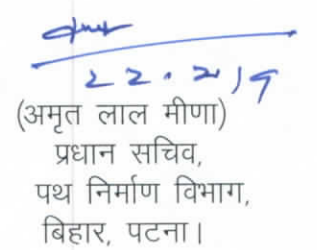 22.2.19
(अमृत लाल मीणा)
प्रधान सचिव,
पथ निर्माण विभाग,
बिहार, पटना।